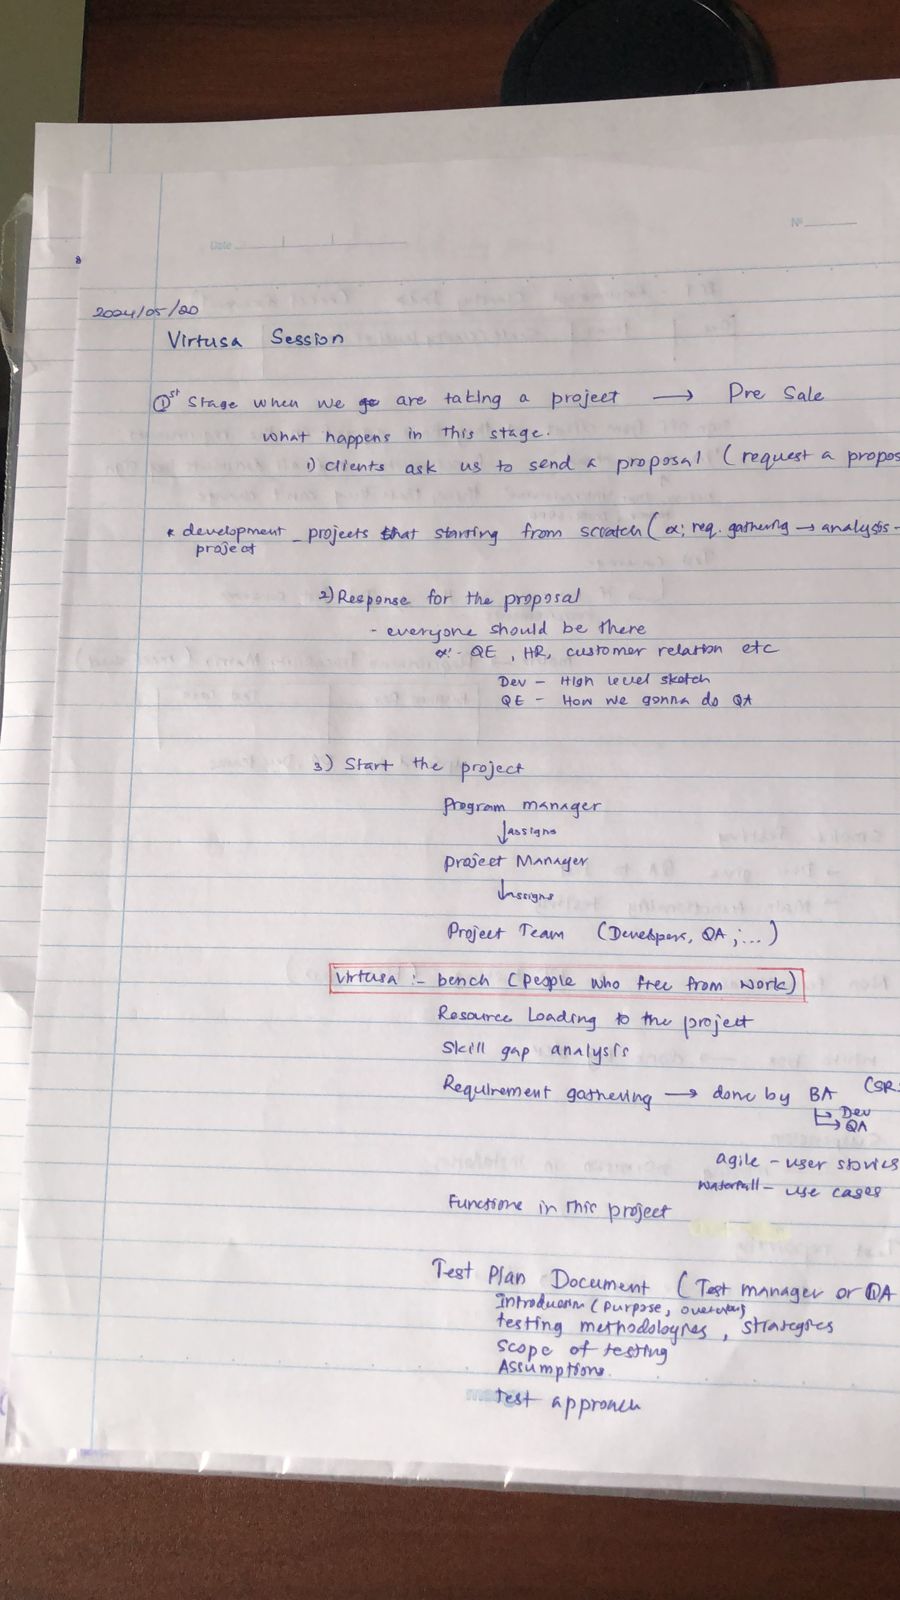 Date
Nº
2024/05/20
Virtusa Session
1st Stage when we are taking a project → Pre Sale
what happens in this stage.
1) clients ask us to send a proposal (request a propos
* development - projects that starting from scratch (ex; req. gathering → analysis -
project
2) Response for the proposal
- everyone should be there
ex:- QE, HR, customer relation etc
Dev - High level sketch
QE - How we gonna do QA
3) Start the project
Program manager
↓ assigns
Project Manager
↓ assigns
Project Team (Developers, QA, ...)
Virtusa :- bench (People who free from work)
Resource Loading to the project
Skill gap analysis
Requirement gathering → done by BA (SR
↳ Dev
↳ QA
agile - user stories
waterfall - use cases
Functions in this project
Test Plan Document (Test manager or QA
Introduction (Purpose, overview)
testing methodologies, strategies
scope of testing
Assumptions.
test approach